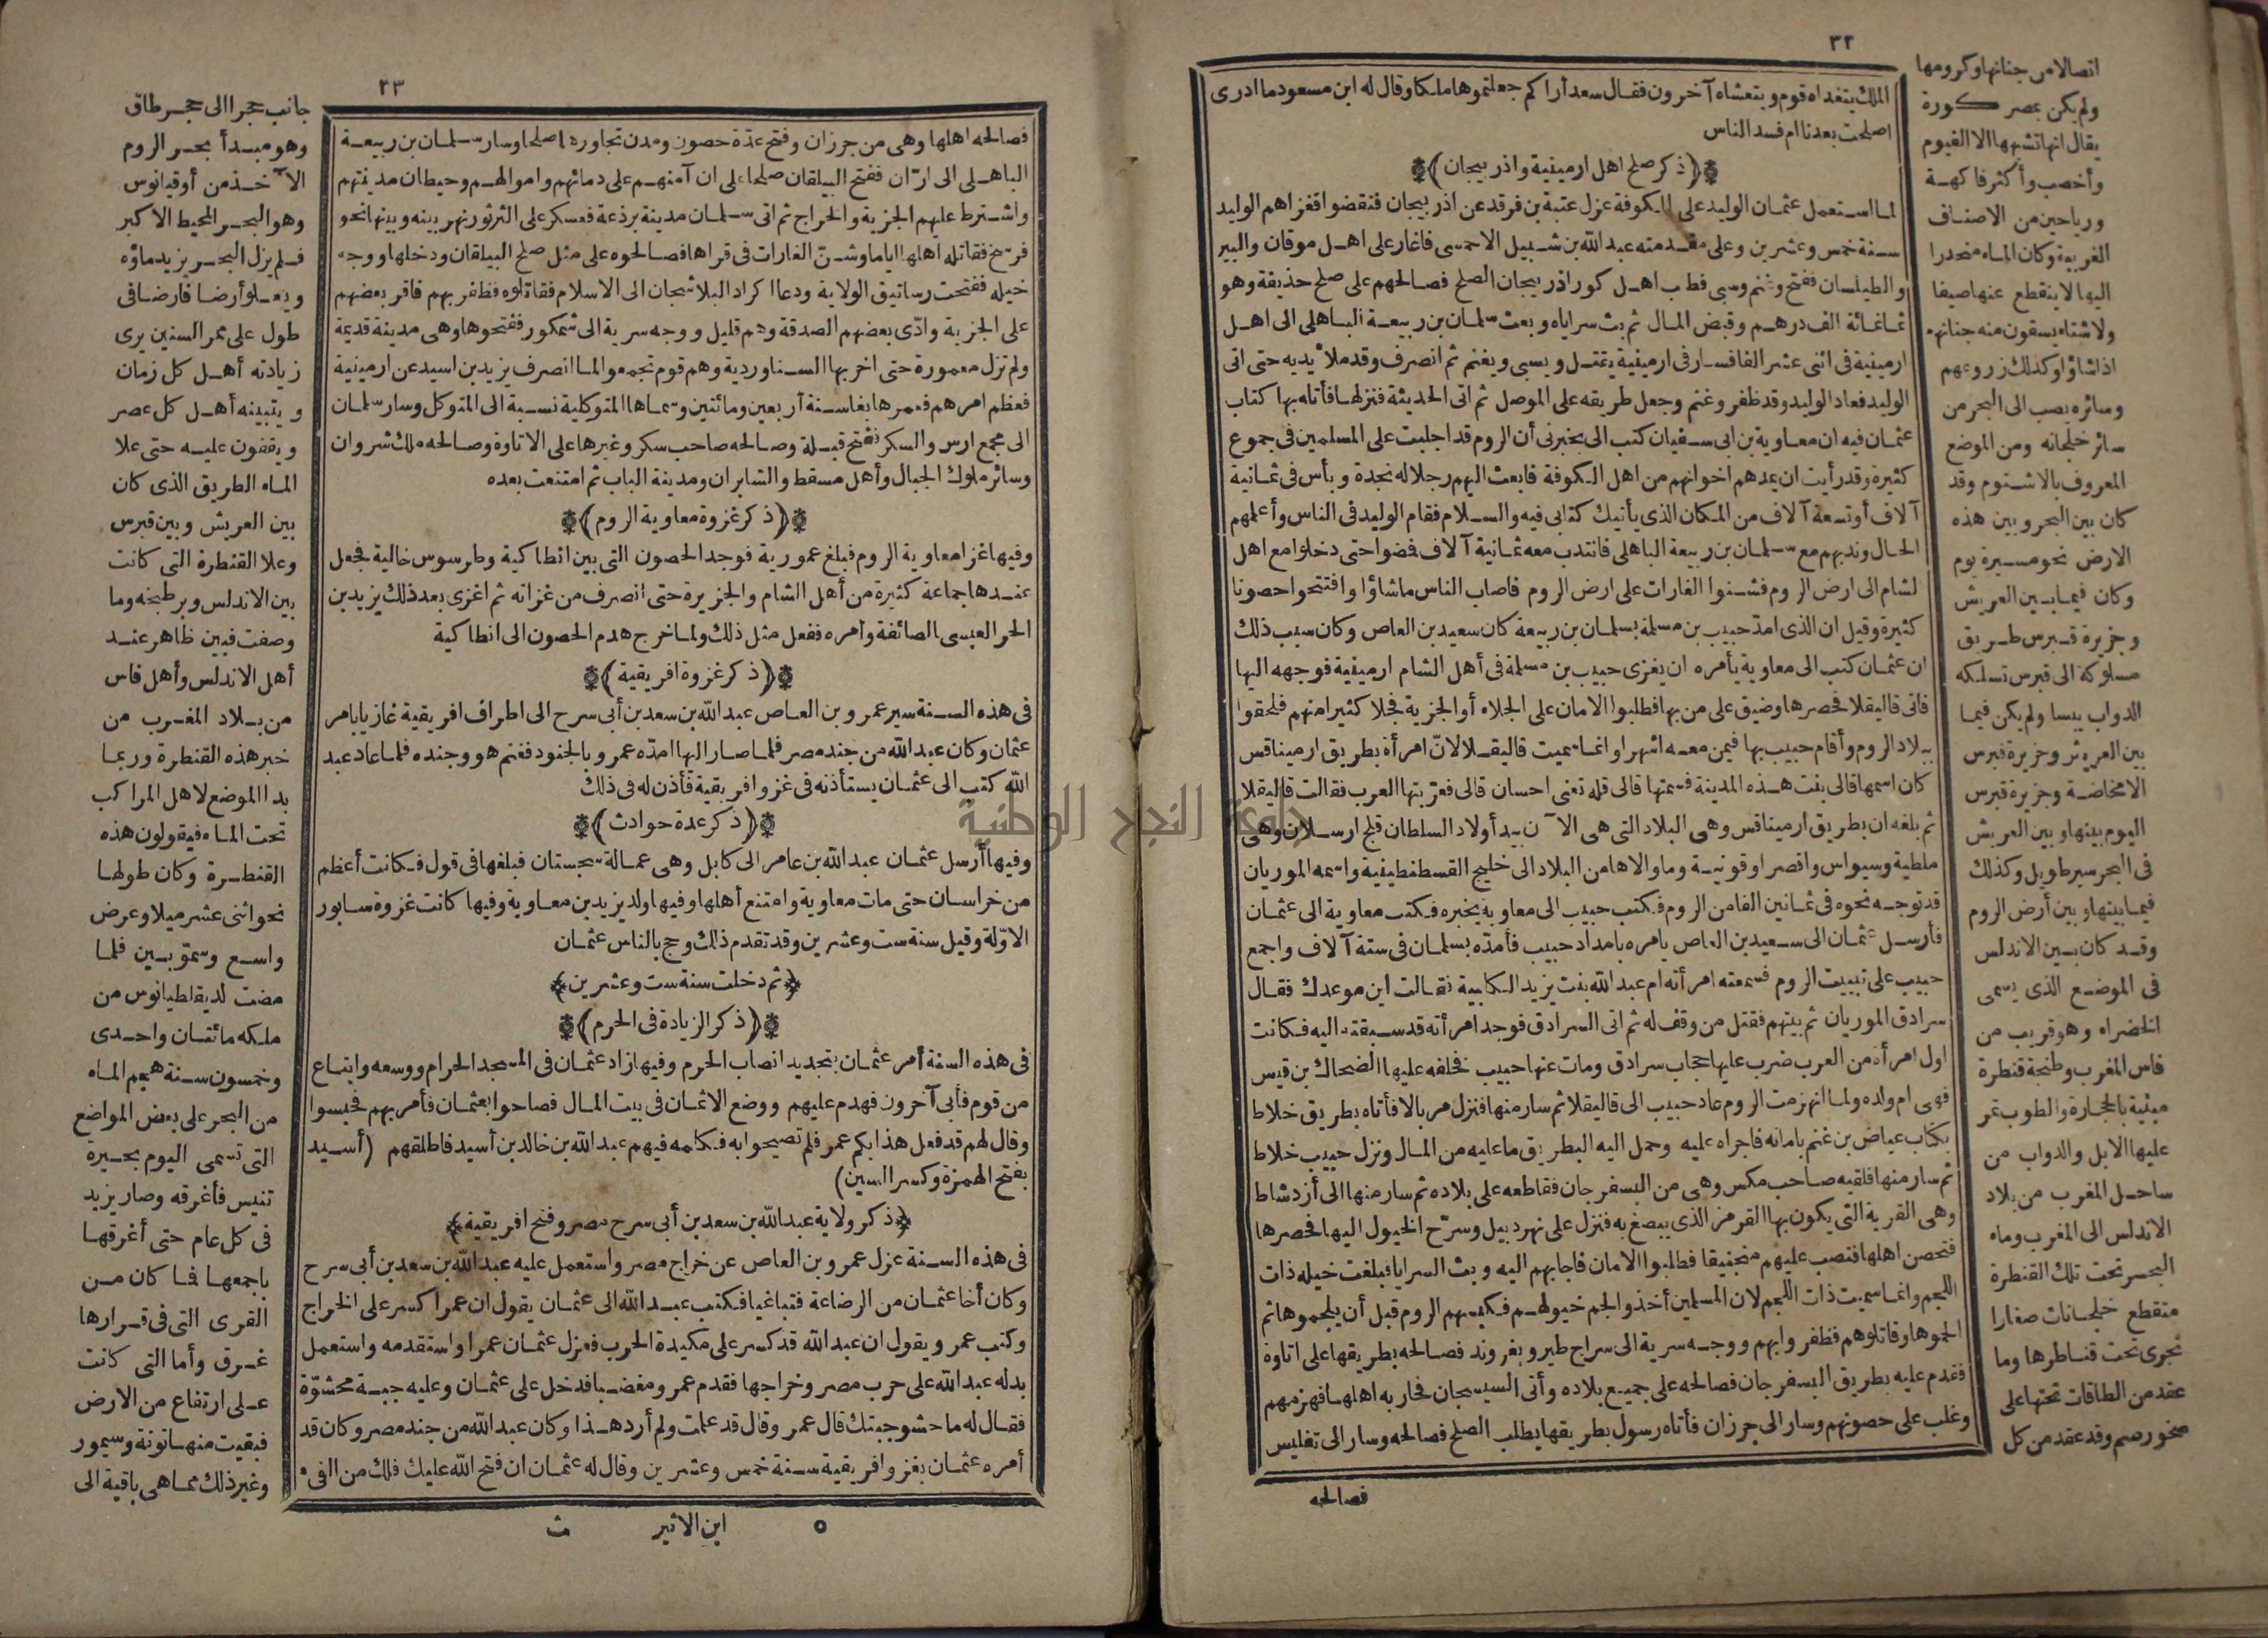 ٣٢
الملك يتغداه قوم ويتعشاه آخرون فقال سعد أراكم جعلتموها ملكا وقال له ابن مسعود ما ادرى
اصلحت بعدنا ام فسد الناس
﴿ذكر صلح اهل ارمينية واذربيجان﴾
لما استعمل عثمان الوليد على الكوفة عزل عتبة بن فرقد عن اذربيجان فنقضوا فغزاهم الوليد
سنة خمس وعشرين وعلى مقدمته عبد الله بن شبيل الاحمسى فاغار على اهل موقان والببر
والطيلسان ففتح وغنم وسبى فطلب اهل كور اذربيجان الصلح فصالحهم على صلح حذيفة وهو
ثمانمائة الف درهم وقبض المال ثم بث سراياه وبعث سلمان بن ربيعة الباهلى الى اهل
ارمينية فى اثنى عشر الفا فسار فى ارمينية يقتل ويسبى ويغنم ثم انصرف وقد ملأ يديه حتى اتى
الوليد فعاد الوليد وقد ظفر وغنم وجعل طريقه على الموصل ثم اتى الحديثة فنزلها فأتاه بها كتاب
عثمان فيه ان معاوية بن ابى سفيان كتب الى يخبرنى أن الروم قد اجلبت على المسلمين فى جموع
كثيرة وقد رأيت ان يمدهم اخوانهم من اهل الكوفة فابعث اليهم رجلا له نجدة وبأس فى ثمانية
آلاف أو تسعة آلاف من المكان الذى يأتيك كتابى فيه والسلام فقام الوليد فى الناس وأعلمهم
الحال وندبهم مع سلمان بن ربيعة الباهلى فانتدب معه ثمانية آلاف فمضوا حتى دخلوا مع اهل
لشام الى ارض الروم فشنوا الغارات على ارض الروم فاصاب الناس ماشاؤا وافتتحوا حصونا
كثيرة وقيل ان الذى امدّ حبيب بن مسلمة بسلمان بن ربيعة كان سعيد بن العاص وكان سبب ذلك
ان عثمان كتب الى معاوية يأمره ان يغزى حبيب بن مسلمة فى أهل الشام ارمينية فوجهه اليها
فاتى قاليقلا فحصرها وضيق على من بها فطلبوا الامان على الجلاء أو الجزية فجلا كثير منهم فلحقوا
ببلاد الروم وأقام حبيب بها فيمن معه اشهرا وانما سميت قاليقلا لانّ امرأة بطريق ارميناقس
كان اسمها قالى بنت هذه المدينة فسمتها قالى قله تعنى احسان قالى فعرّبتها العرب فقالت قاليقلا
ثم بلغه ان بطريق ارميناقس وهى البلاد التى هى الآن بيد أولاد السلطان قلج ارسلان وهى
ملطية وسيواس واقصرا وقونية وما والاها من البلاد الى خليج القسطنطينية واسمه الموريان
قد توجه نحوه فى ثمانين الفا من الروم فكتب حبيب الى معاوية يخبره فكتب معاوية الى عثمان
فأرسل عثمان الى سعيد بن العاص يأمره بامداد حبيب فأمدّه بسلمان فى ستة آلاف واجمع
حبيب على تبييت الروم فسمعته امرأته ام عبد الله بنت يزيد الكلبية فقالت اين موعدك فقال
سرادق الموريان ثم بيتهم فقتل من وقف له ثم اتى السرادق فوجد امرأته قد سبقته اليه فكانت
اول امرأة من العرب ضرب عليها حجاب سرادق ومات عنها حبيب فخلفه عليها الضحاك بن قيس
فهى ام ولده ولما انهزمت الروم عاد حبيب الى قاليقلا ثم سار منها فنزل مربالا فأتاه بطريق خلاط
بكتاب عياض بن غنم بامانه فاجراه عليه وحمل اليه البطريق ما عليه من المال ونزل حبيب خلاط
ثم سار منها فلقيه صاحب مكس وهى من البسفرجان فقاطعه على بلاده ثم سار منها الى أزدشاط
وهى القرية التى يكون بها القرمز الذى يصبغ به فنزل على نهر دبيل وسرّح الخيول اليها فحصرها
فتحصن اهلها فنصب عليهم منجنيقا فطلبوا الامان فاجابهم اليه وبث السرايا فبلغت خيله ذات
اللجم وانما سميت ذات اللجم لان المسلمين أخذوا لجم خيولهم فكبسهم الروم قبل أن يلجموها ثم
الجموها وقاتلوهم فظفروا بهم ووجه سرية الى سراج طير وبغروند فصالحه بطريقها على اتاوة
فقدم عليه بطريق البسفرجان فصالحه على جميع بلاده وأتى السيسجان فحاربه اهلها فهزمهم
وغلب على حصونهم وسار الى جرزان فأتاه رسول بطريقها يطلب الصلح فصالحه وسار الى تفليس
فصالحه
اتصالا من جنانها وكرومها
ولم يكن بمصر كورة
يقال انها تشبهها الا الفيوم
وأخصب وأكثر فاكهة
ورياحين من الاصناف
الغريبة وكان الماء منحدرا
اليها لا ينقطع عنها صيفا
ولا شتاء يسقون منه جنانهم
اذا شاؤا وكذلك زروعهم
وسائره يصب الى البحر من
سائر خلجانه ومن الموضع
المعروف بالاشتوم وقد
كان بين البحر وبين هذه
الارض نحو مسيرة يوم
وكان فيما بين العريش
وجزيرة قبرس طريق
مسلوكة الى قبرس تسلكه
الدواب يبسا ولم يكن فيما
بين العريش وجزيرة قبرس
الا مخاضة وجزيرة قبرس
اليوم بينها وبين العريش
فى البحر سير طويل وكذلك
فيما بينها وبين أرض الروم
وقد كان بين الاندلس
فى الموضع الذى يسمى
الخضراء وهو قريب من
فاس المغرب وطنجة قنطرة
مبنية بالحجارة والطوب تمر
عليها الابل والدواب من
ساحل المغرب من بلاد
الاندلس الى المغرب وماء
البحر تحت تلك القنطرة
متقطع خلجانات صغارا
تجرى تحت قناطرها وما
عقد من الطاقات تحتها على
صخور صم وقد عقد من كل
٣٣
فصالحه اهلها وهى من جرزان وفتح عدّة حصون ومدن تجاورها صلحا وسار سلمان بن ربيعة
الباهلى الى ارّان ففتح البيلقان صلحا على ان آمنهم على دمائهم واموالهم وحيطان مدينتهم
واشترط عليهم الجزية والخراج ثم اتى سلمان مدينة برذعة فعسكر على الثرثور نهر بينه وبينها نحو
فرسخ فقاتله اهلها اياما وشنّ الغارات فى قراها فصالحوه على مثل صلح البيلقان ودخلها ووجه
خيله ففتحت رساتيق الولاية ودعا اكراد البلاشجان الى الاسلام فقاتلوه فظفر بهم فاقر بعضهم
على الجزية وادّى بعضهم الصدقة وهم قليل ووجه سرية الى شمكور ففتحوها وهى مدينة قديمة
ولم تزل معمورة حتى اخربها السناوردية وهم قوم تجمعوا لما انصرف يزيد بن اسيد عن ارمينية
فعظم امرهم فعمرها بغا سنة أربعين ومائتين وسماها المتوكلية نسبة الى المتوكل وسار سلمان
الى مجمع ارس والسكر ففتح قبلة وصالحه صاحب سكر وغيرها على الاتاوة وصالحه ملك شروان
وسائر ملوك الجبال وأهل مسقط والشابران ومدينة الباب ثم امتنعت بعده
﴿ذكر غزوة معاوية الروم﴾
وفيها غزا معاوية الروم فبلغ عمورية فوجد الحصون التى بين انطاكية وطرسوس خالية فجعل
عندها جماعة كثيرة من أهل الشام والجزيرة حتى انصرف من غزاته ثم اغزى بعد ذلك يزيد بن
الحر العبسى الصائفة وأمره ففعل مثل ذلك ولما خرج هدم الحصون الى انطاكية
﴿ذكر غزوة افريقية﴾
فى هذه السنة سير عمرو بن العاص عبد الله بن سعد بن أبى سرح الى اطراف افريقية غازيا بامر
عثمان وكان عبد الله من جند مصر فلما صار اليها امدّه عمرو بالجنود فغنم هو وجنده فلما عاد عبد
الله كتب الى عثمان يستأذنه فى غزو افريقية فأذن له فى ذلك
﴿ذكر عدة حوادث﴾
وفيها أرسل عثمان عبد الله بن عامر الى كابل وهى عمالة سجستان فبلغها فى قول فكانت أعظم
من خراسان حتى مات معاوية وامتنع أهلها وفيها ولد يزيد بن معاوية وفيها كانت غزوة سابور
الاوّلة وقيل سنة ست وعشرين وقد تقدم ذلك وحج بالناس عثمان
﴿ثم دخلت سنة ست وعشرين﴾
﴿ذكر الزيادة فى الحرم﴾
فى هذه السنة أمر عثمان بتجديد انصاب الحرم وفيها زاد عثمان فى المسجد الحرام ووسعه وابتاع
من قوم فأبى آخرون فهدم عليهم ووضع الاثمان فى بيت المال فصاحوا بعثمان فأمر بهم فحبسوا
وقال لهم قد فعل هذا بكم عمر فلم تصيحوا به فكلمه فيهم عبد الله بن خالد بن أسيد فاطلقهم (أسيد
بفتح الهمزة وكسر السين)
﴿ذكر ولاية عبد الله بن سعد بن أبى سرح مصر وفتح افريقية﴾
فى هذه السنة عزل عمرو بن العاص عن خراج مصر واستعمل عليه عبد الله بن سعد بن أبى سرح
وكان أخا عثمان من الرضاعة فتباغيا فكتب عبد الله الى عثمان يقول ان عمرا كسر على الخراج
وكتب عمرو يقول ان عبد الله قد كسر على مكيدة الحرب فعزل عثمان عمرا واستقدمه واستعمل
بدله عبد الله على حرب مصر وخراجها فقدم عمرو مغضبا فدخل على عثمان وعليه جبة محشوّة
فقال له ما حشو جبتك قال عمرو وقال قد علمت ولم أرد هذا وكان عبد الله من جند مصر وكان قد
أمره عثمان بغزو افريقية سنة خمس وعشرين وقال له عثمان ان فتح الله عليك فلك من الفىء
٥ ابن الاثير ث
جانب حجرا الى حجر طاق
وهو مبدأ بحر الروم
الآخذ من أوقيانوس
وهو البحر المحيط الاكبر
فلم يزل البحر يزيد ماؤه
ويعلو أرضا فارضا فى
طول على ممر السنين يرى
زيادته أهل كل زمان
ويتبينه أهل كل عصر
ويقفون عليه حتى علا
الماء الطريق الذى كان
بين العريش وبين قبرس
وعلا القنطرة التى كانت
بين الاندلس وبر طنجه وما
وصفت فبين ظاهر عند
أهل الاندلس وأهل فاس
من بلاد المغرب من
خبر هذه القنطرة وربما
بدا الموضع لاهل المراكب
تحت الماء فيقولون هذه
القنطرة وكان طولها
نحو اثنى عشر ميلا وعرض
واسع وسموّ بين فلما
مضت لديقلطيانوس من
ملكه مائتان واحدى
وخمسون سنة هجم الماء
من البحر على بعض المواضع
التى تسمى اليوم بحيرة
تنيس فأغرقه وصار يزيد
فى كل عام حتى أغرقها
باجمعها فما كان من
القرى التى فى قرارها
غرق وأما التى كانت
على ارتفاع من الارض
فبقيت منها تونة وسمور
وغير ذلك مما هى باقية الى
جامعة النجاح الوطنية